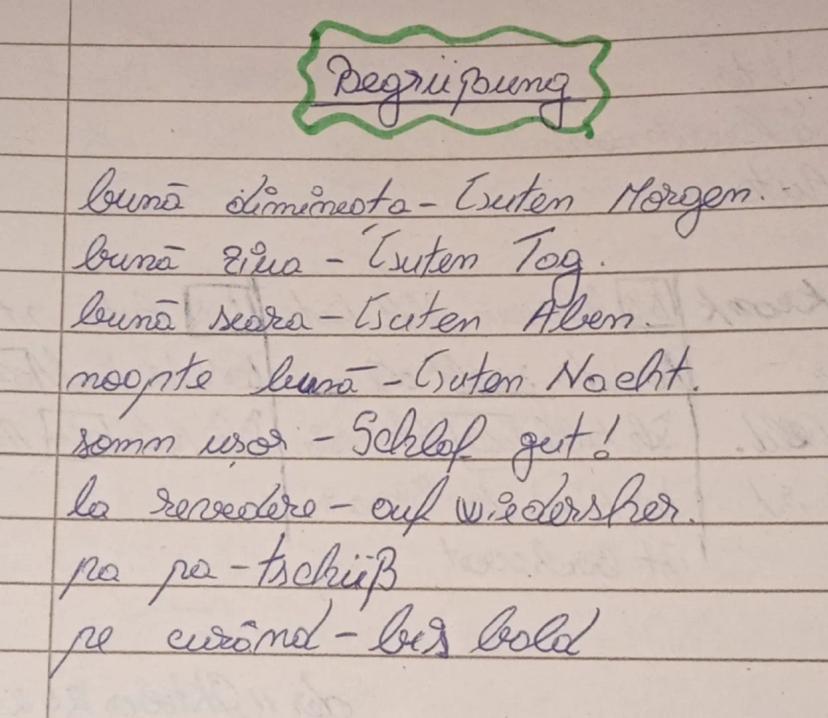 Begrüßung
bună dimineata - Guten Morgen.
bună ziua - Guten Tag.
bună seara - Guten Aben.
noapte bună - Guten Nacht.
somn uşor - Schlaf gut!
la revedere - auf wiedersher.
pa pa - tschüß
pe curând - bis bald